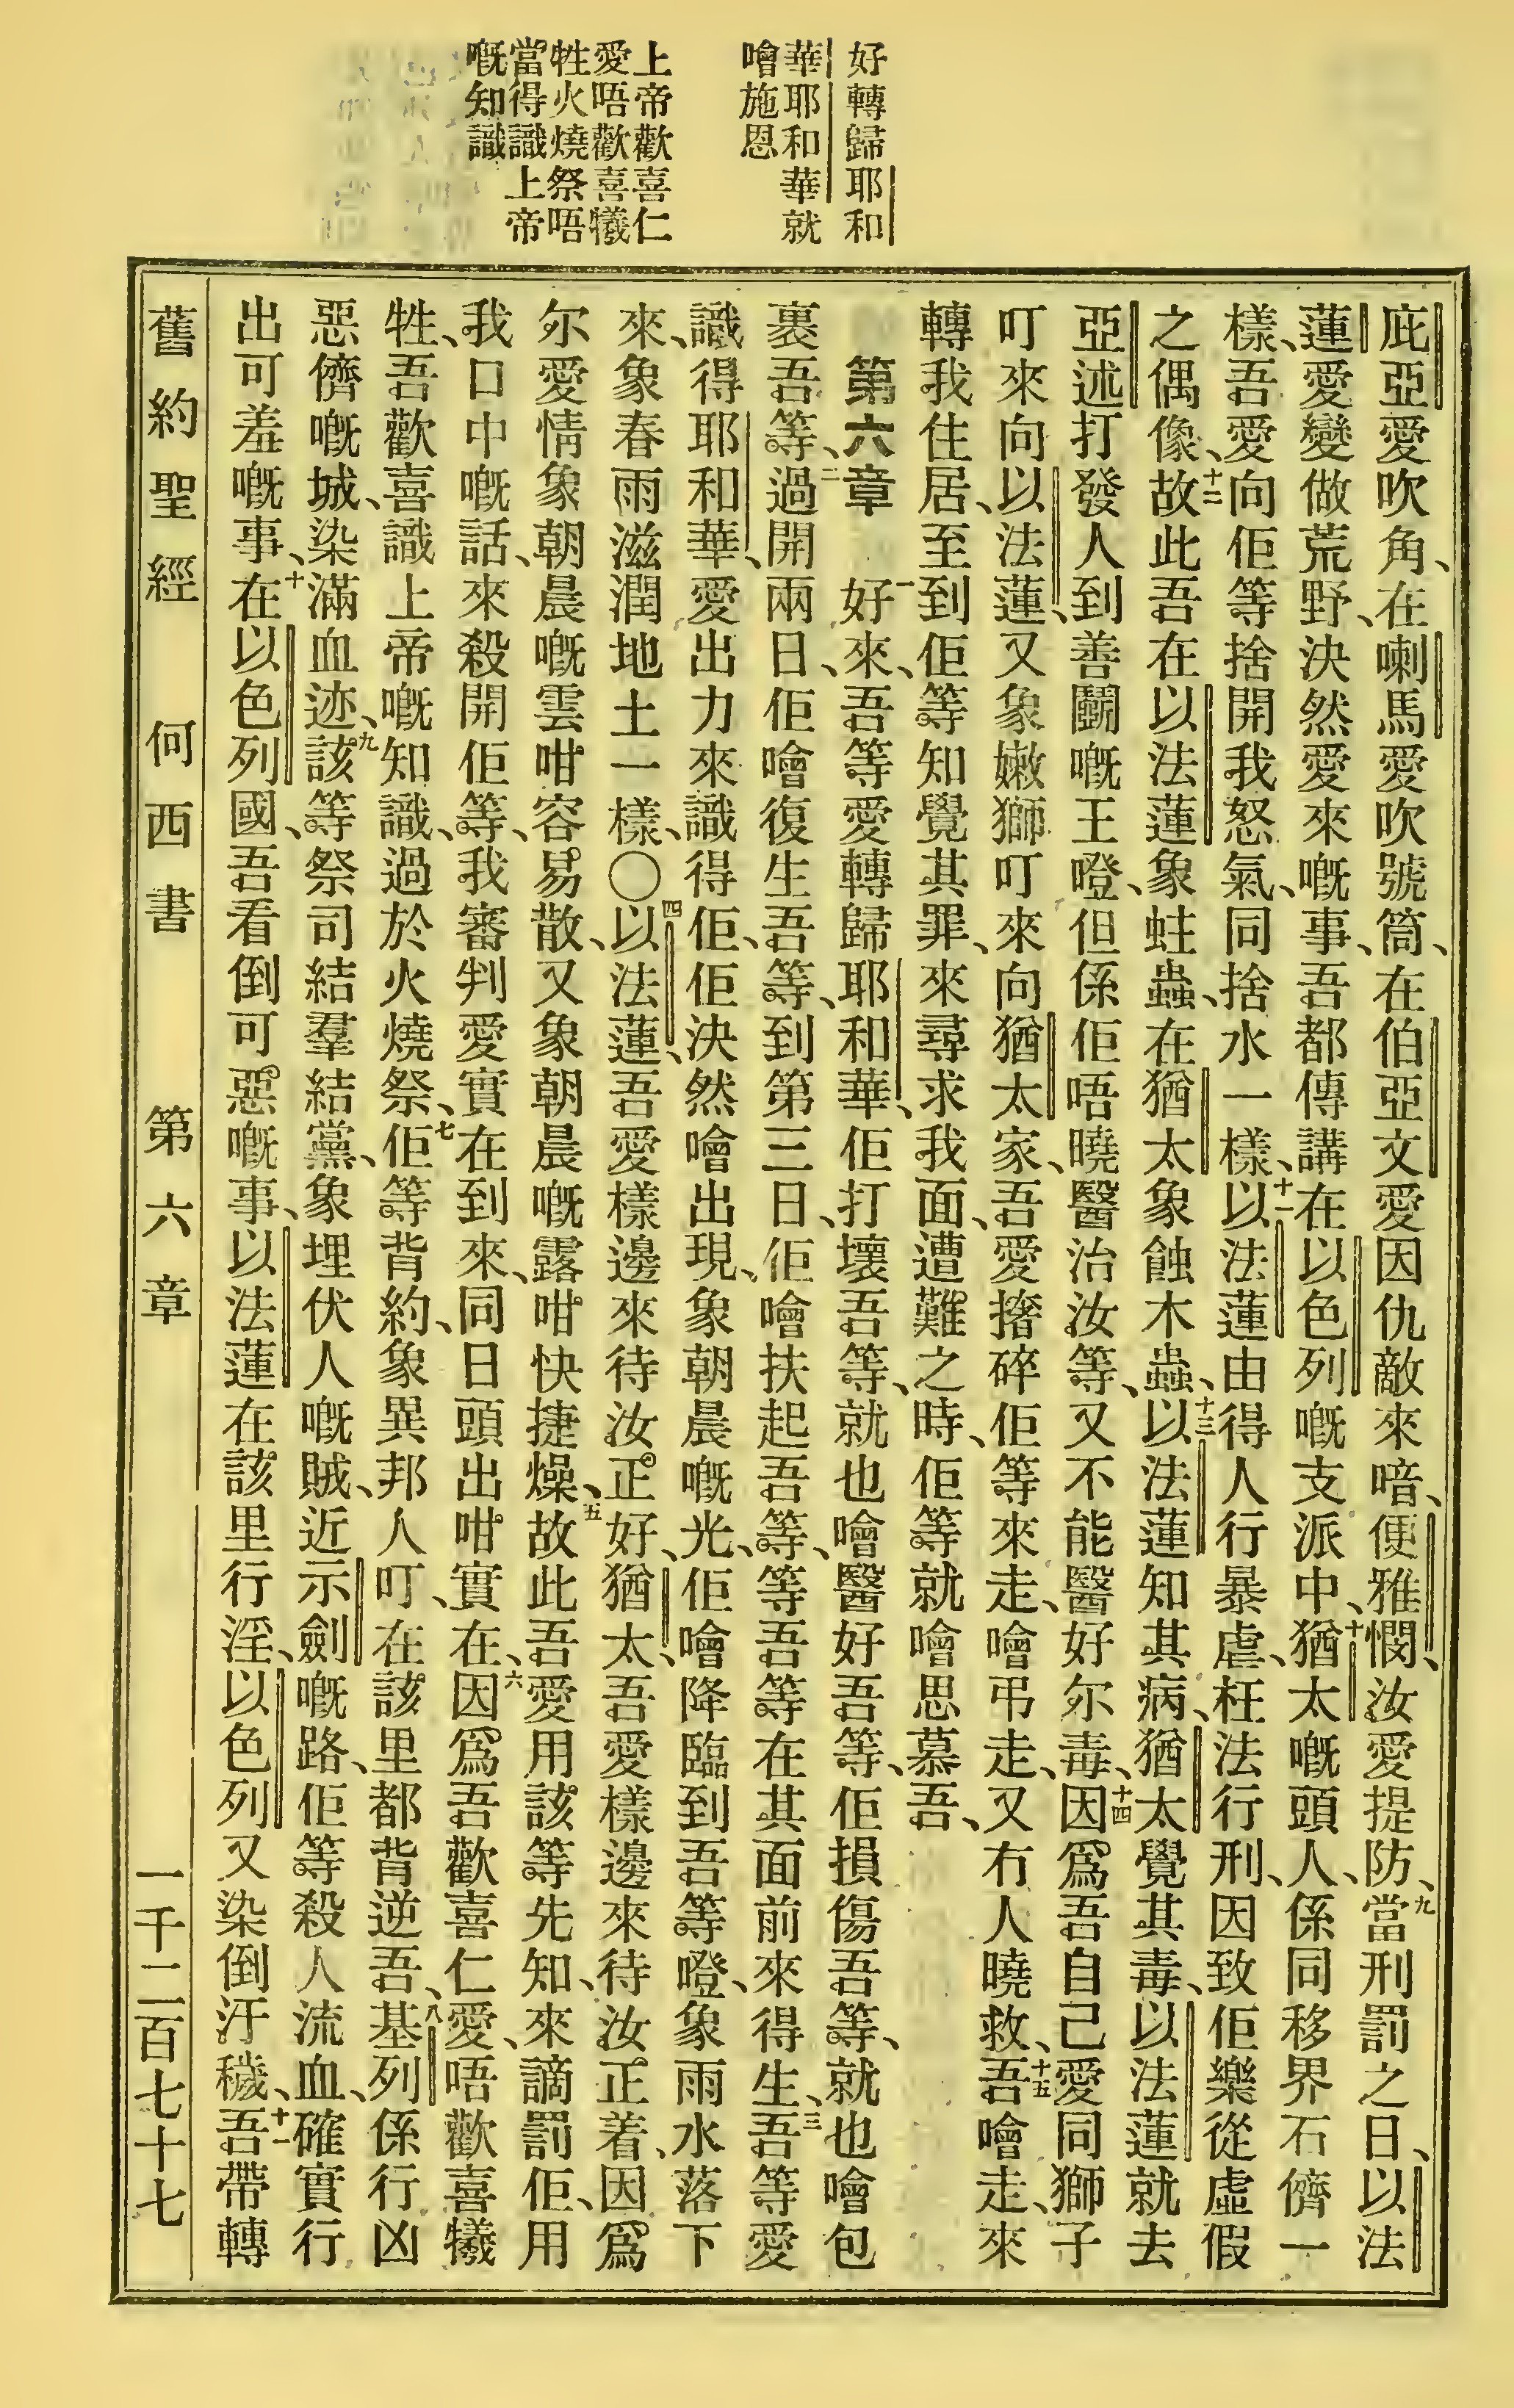 好轉歸耶和
華耶和華就
噲施恩
上帝歡喜仁
愛唔歡喜犧
牲火燒祭唔
當得識上帝
嘅知識
庇亞愛吹角、在喇馬愛吹號筒、在伯亞文愛因仇敵來喑、便雅憫、汝愛提防、九當刑罰之日、以法
蓮愛變做荒野、決然愛來嘅事、吾都傳講在以色列嘅支派中、十猶太嘅頭人、係同移界石儕一
樣、吾愛向佢等捨開我怒氣、同捨水一樣、十一以法蓮由得人行暴虐、枉法行刑、因致佢樂從虛假
之偶像、十二故此吾在以法蓮象蛀蟲、在猶太象蝕木蟲、十三以法蓮知其病、猶太覺其毒、以法蓮就去
亞述打發人到善鬬嘅王嶝、但係佢唔曉醫治汝等、又不能醫好尔毒、十四因爲吾自己愛同獅子
叮來向以法蓮、又象嫩獅叮來向猶太家、吾愛撦碎佢等來走、噲弔走、又冇人曉救、十五吾噲走、來
轉我住居、至到佢等知覺其罪、來尋求我面、遭難之時、佢等就噲思慕吾、
第六章　一好來、吾等愛轉歸耶和華、佢打壞吾等、就也噲醫好吾等、佢損傷吾等、就也噲包
裹吾等、二過開兩日、佢噲復生吾等、到第三日、佢噲扶起吾等、等吾等在其面前來得生、三吾等愛
識得耶和華、愛出力來識得佢、佢決然噲出現、象朝晨嘅光、佢噲降臨到吾等嶝、象雨水落下
來、象春雨滋潤地土一樣、〇四以法蓮、吾愛樣邊來待汝正好、猶太、吾愛樣邊來待汝正着、因爲
尔愛情象朝晨嘅雲咁容易散、又象朝晨嘅露咁快捷燥、五故此吾愛用該等先知、來謫罰佢、用
我口中嘅話、來殺開佢等、我審判愛實在到來、同日頭出咁實在、六因爲吾歡喜仁愛、唔歡喜犧
牲、吾歡喜識上帝嘅知識、過於火燒祭、七佢等背約、象異邦人叮、在該里都背逆吾、八基列係行凶
惡儕嘅城、染滿血迹、九該等祭司結羣結黨、象埋伏人嘅賊、近示劍嘅路、佢等殺人流血、確實行
出可羞嘅事、十在以色列國、吾看倒可惡嘅事、以法蓮在該里行淫、以色列又染倒汙穢、十一吾帶轉
舊約聖經　何西書　第六章　一千二百七十七